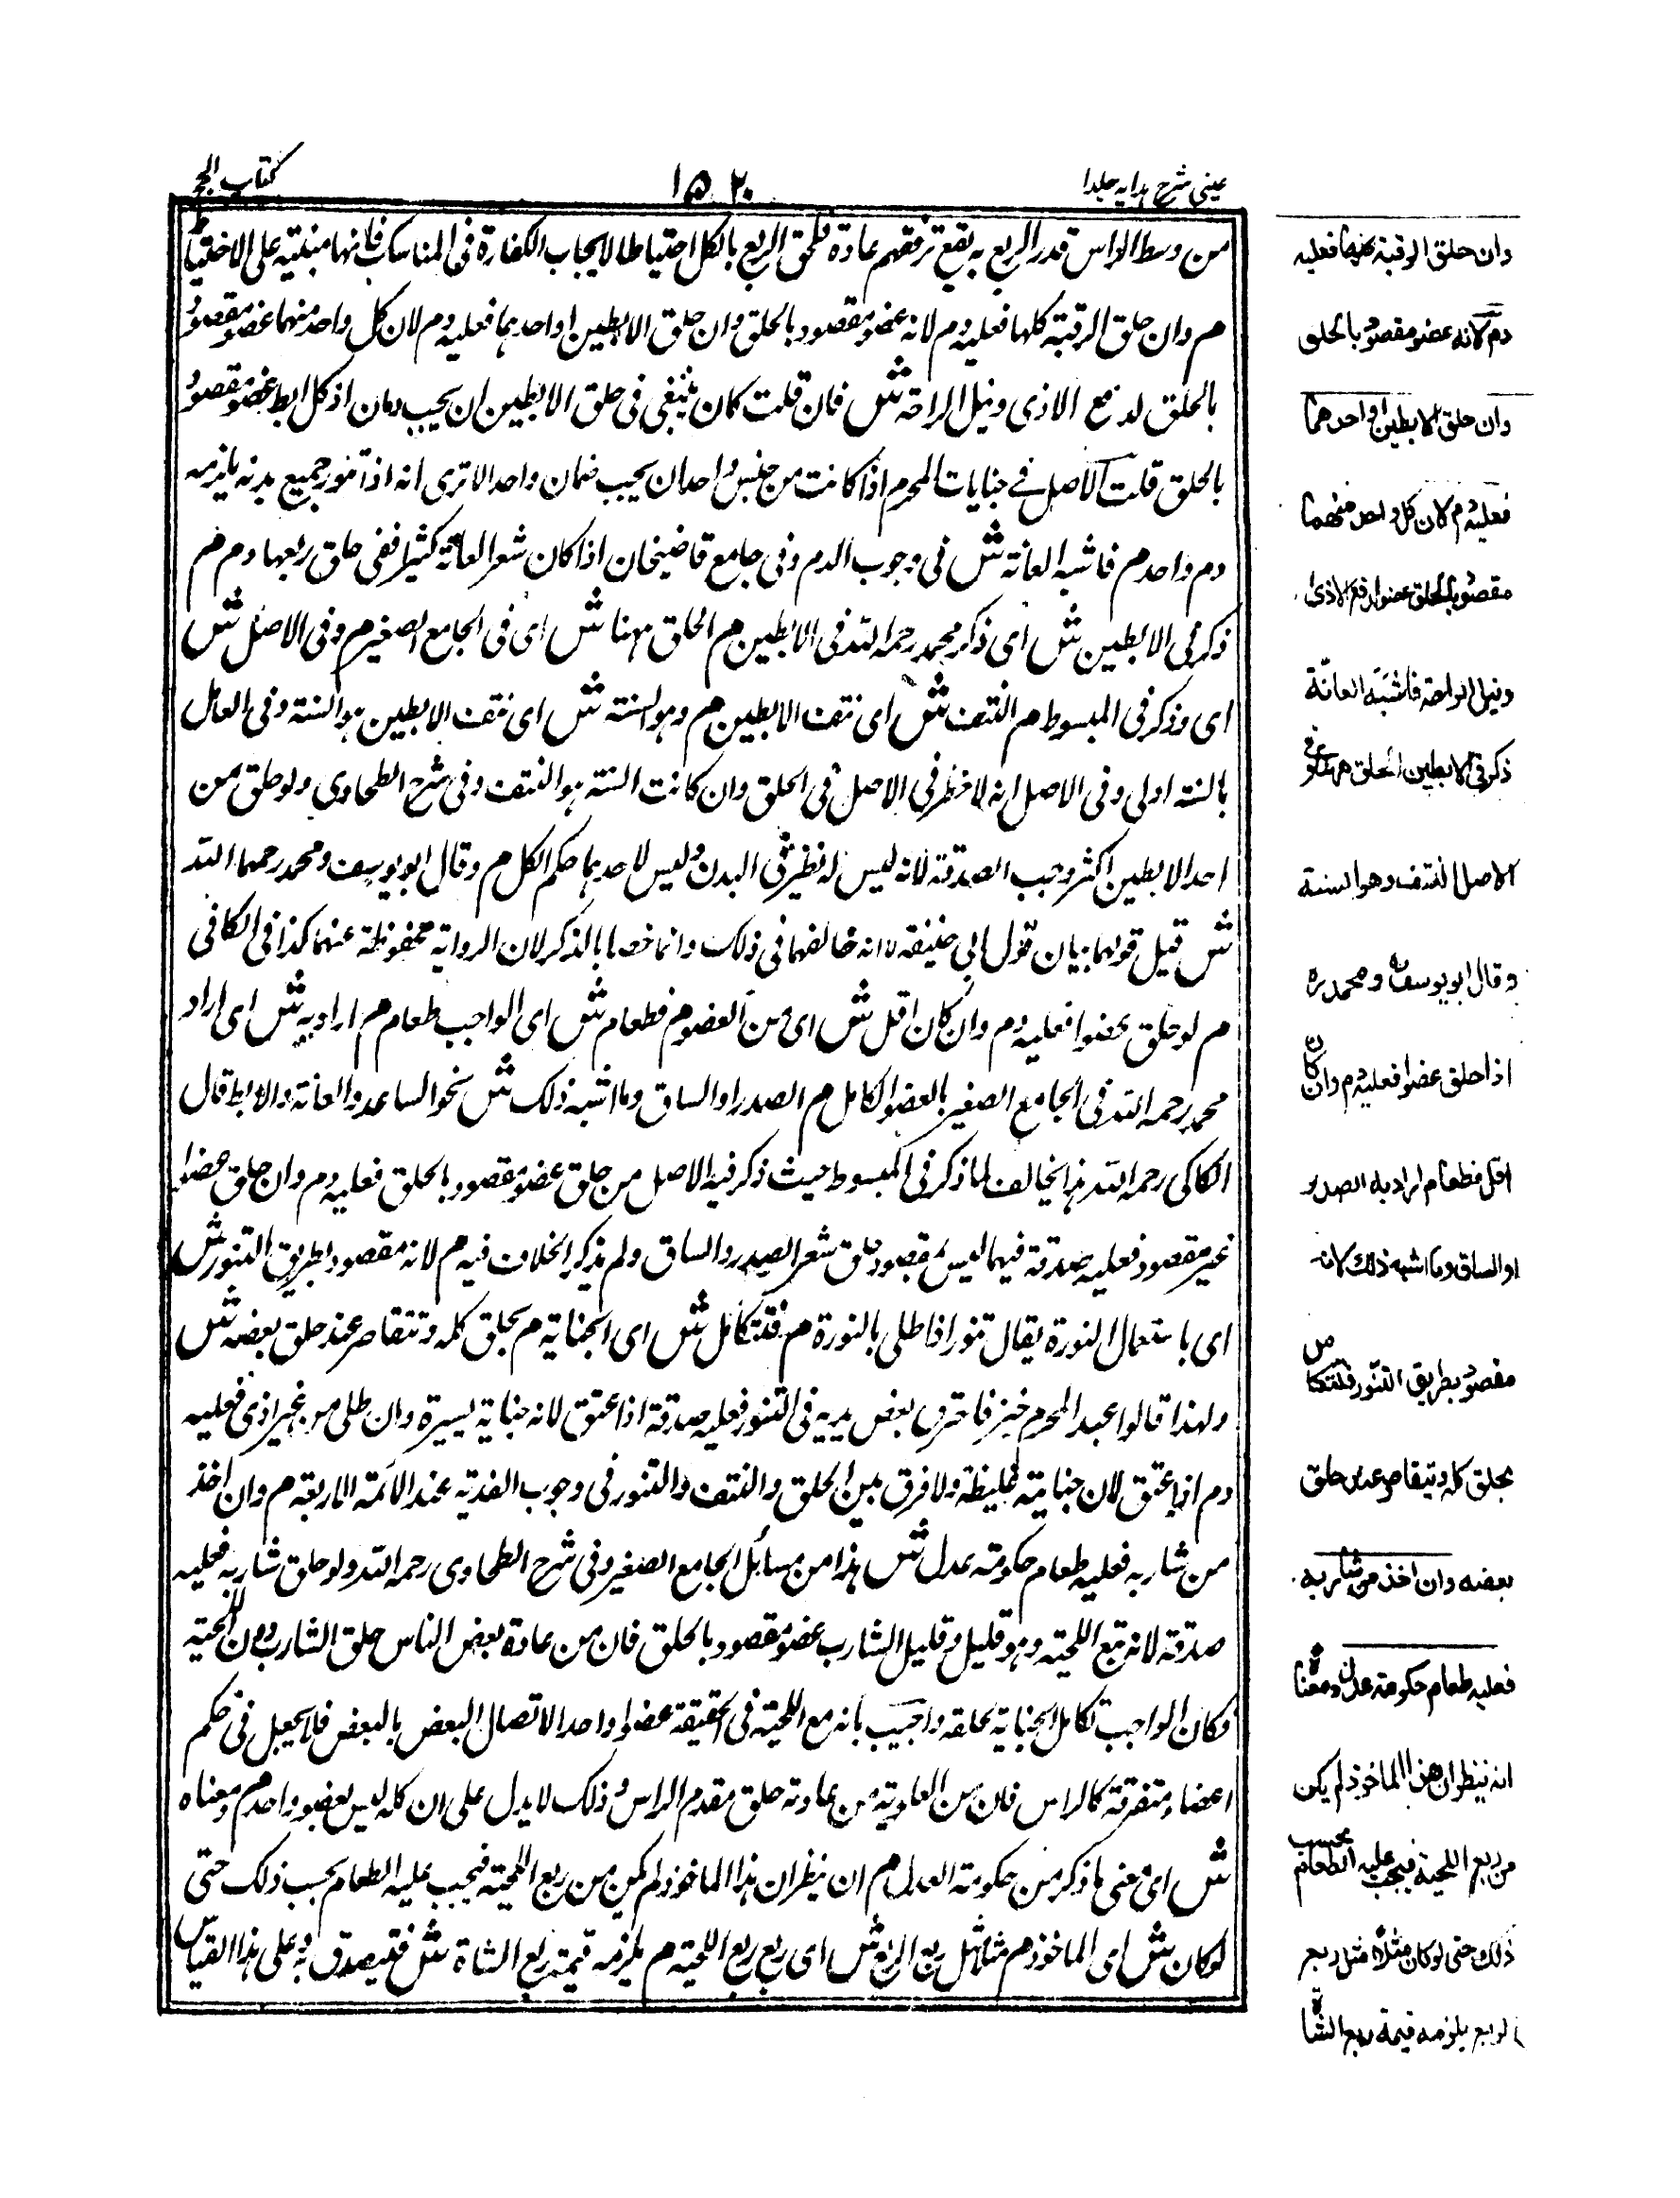 عینی شرح ہدایہ جلد ا
۱۵۲۰
کتاب الحج
من وسط الراس قدر الربع به یقع ترفقهم عادة فلحق الربع بالکل احتیاطا لایجاب الکفارة فی المناسک فانها مبنیة علی الاحتیاط
م وان حلق الرقبة کلها فعلیه دم لانه عضو مقصود بالحلق وان حلق الابطین او احدهما فعلیه دم لان کل واحد منهما عضو مقصود
بالحلق لدفع الاذی ونیل الراحة ش فان قلت کان ینبغی فی حلق الابطین ان یجب دمان اذ کل ابط عضو مقصود
بالحلق قلت الاصل فی جنایات المحرم اذا کانت من جنس واحد ان یجب ضمان واحد الا تری انه اذا تنور جمیع بدنه یلزمه
دم واحد م فاشبه العانة ش فی وجوب الدم وفی جامع قاضیخان اذا کان شعر العانة کثیرا ففی حلق ربعها دم م
ذکر فی الابطین ش ای ذکر محمد رحمه الله فی الابطین م الحلق ههنا ش ای فی الجامع الصغیر م وفی الاصل ش
ای وذکر فی المبسوط م النتف ش ای نتف الابطین م وهو السنة ش ای نتف الابطین هو السنة وفی العمل
بالسنة اولی وفی الاصل انه لاحظر فی الاصل فی الحلق وان کانت السنة هو النتف وفی شرح الطحاوی ولو حلق من
احد الابطین اکثر وجب الصدقة لانه لیس له نظیر فی البدن ولیس لاحدهما حکم الکل م وقال ابو یوسف ومحمد رحمهما الله
ش قیل قولهما بیان قول ابی حنیفة لا انه خالفهما فی ذلک وانما خصا بالذکر لان الروایة محفوظة عنهما کذا فی الکافی
م لو حلق عضوا فعلیه دم وان کان اقل ش ای من العضو م فطعام ش ای الواجب طعام م اراد به ش ای اراد
محمد رحمه الله فی الجامع الصغیر بالعضو الکامل م الصدر او الساق وما اشبه ذلک ش نحو الساعد والعانة والابط قال
الکاکی رحمه الله هذا یخالف لما ذکر فی المبسوط حیث ذکر فیه الاصل من حلق عضو مقصود بالحلق فعلیه دم وان حلق عضوا
غیر مقصود فعلیه صدقة فیما لیس بمقصود حلق شعر الصدر والساق ولم یذکر الخلاف فیه م لانه مقصود بطریق التنور ش
ای باستعمال النورة یقال تنور اذا طلی بالنورة م فتتکامل ش ای الجنایة م بحلق کله وتتقاصر عند حلق بعضه ش
ولهذا قالوا عبد المحرم خبز فاحترق بعض یدیه فی التنور فعلیه صدقة اذا عتق لانه جنایة یسیرة وان طلی من غیر اذی فعلیه
دم اذا عتق لان جنایته غلیظة ولا فرق بین الحلق والنتف والتنور فی وجوب الفدیة عند الائمة الاربعة م وان اخذ
من شاربه فعلیه طعام حکومة عدل ش هذا من مسائل الجامع الصغیر وفی شرح الطحاوی رحمه الله ولو حلق شاربه فعلیه
صدقة لانه تبع اللحیة وهو قلیل وقلیل الشارب عضو مقصود بالحلق فان من عادة بعض الناس حلق الشارب دون اللحیة
فکان الواجب تکامل الجنایة بحلقه واجیب بانه مع اللحیة فی الحقیقة عضو واحد الاتصال البعض بالبعض فلا یجعل فی حکم
اعضاء متفرقة کالراس فان من العلویة من عادته حلق مقدم الراس وذلک لا یدل علی ان کله لیس بعضو واحد م ومعناه
ش ای معنی ما ذکر من حکومة العدل م ان ینظر ان هذا الماخوذ کم یکون من ربع اللحیة فیجب علیه الطعام بحسب ذلک حتی
لو کان ش ای الماخوذ م مثلا مثل ربع الربع ش ای ربع ربع اللحیة م یلزمه قیمة ربع الشاة ش فیتصدق به وعلی هذا القیاس
وان حلق الرقبة کلها فعلیه
دم لانه عضو مقصود بالحلق
وان حلق الابطین او احدهما
فعلیه دم لان کل واحد منهما
مقصود بالحلق لدفع الاذی
ونیل الراحة فاشبه العانة
ذکر فی الابطین الحلق ههنا وفی
الاصل النتف وهو السنة
وقال ابو یوسف ومحمد
اذا حلق عضوا فعلیه دم وان کان
اقل فطعام اراد به الصدر
او الساق وما اشبه ذلک لانه
مقصود بطریق التنور فتتکامل
بحلق کله وتتقاصر عند حلق
بعضه وان اخذ من شاربه
فعلیه طعام حکومة عدل ومعناه
انه ینظر ان هذا الماخوذ کم یکون
من ربع اللحیة فیجب علیه الطعام بحسب
ذلک حتی لو کان مثلا مثل ربع
الربع یلزمه قیمة ربع الشاة